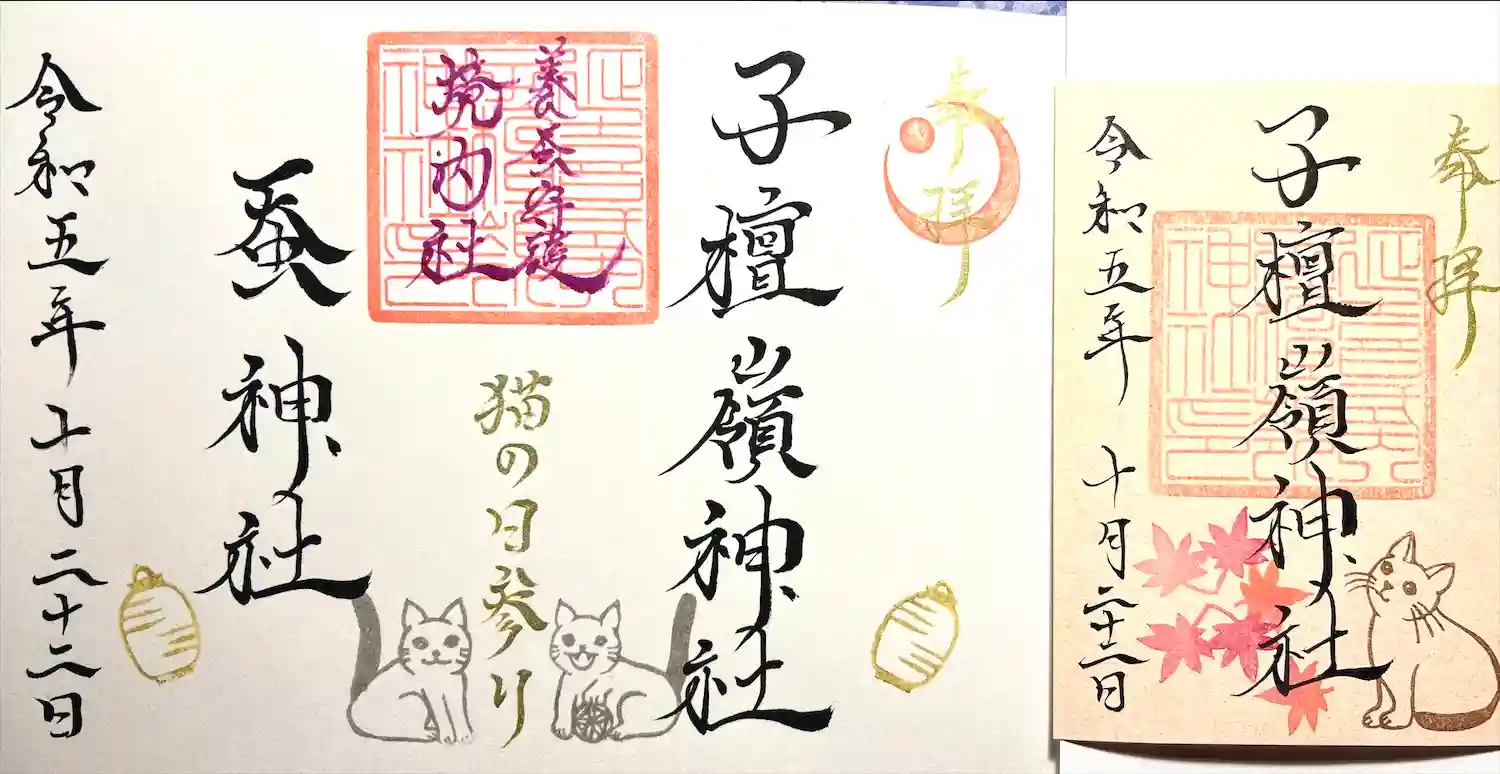 奉拝
子檀嶺神社
養蚕守護
境内社
猫の日参り
蚕神社
令和五年十月二十二日
奉拝
子檀嶺神社
令和五年十月二十二日